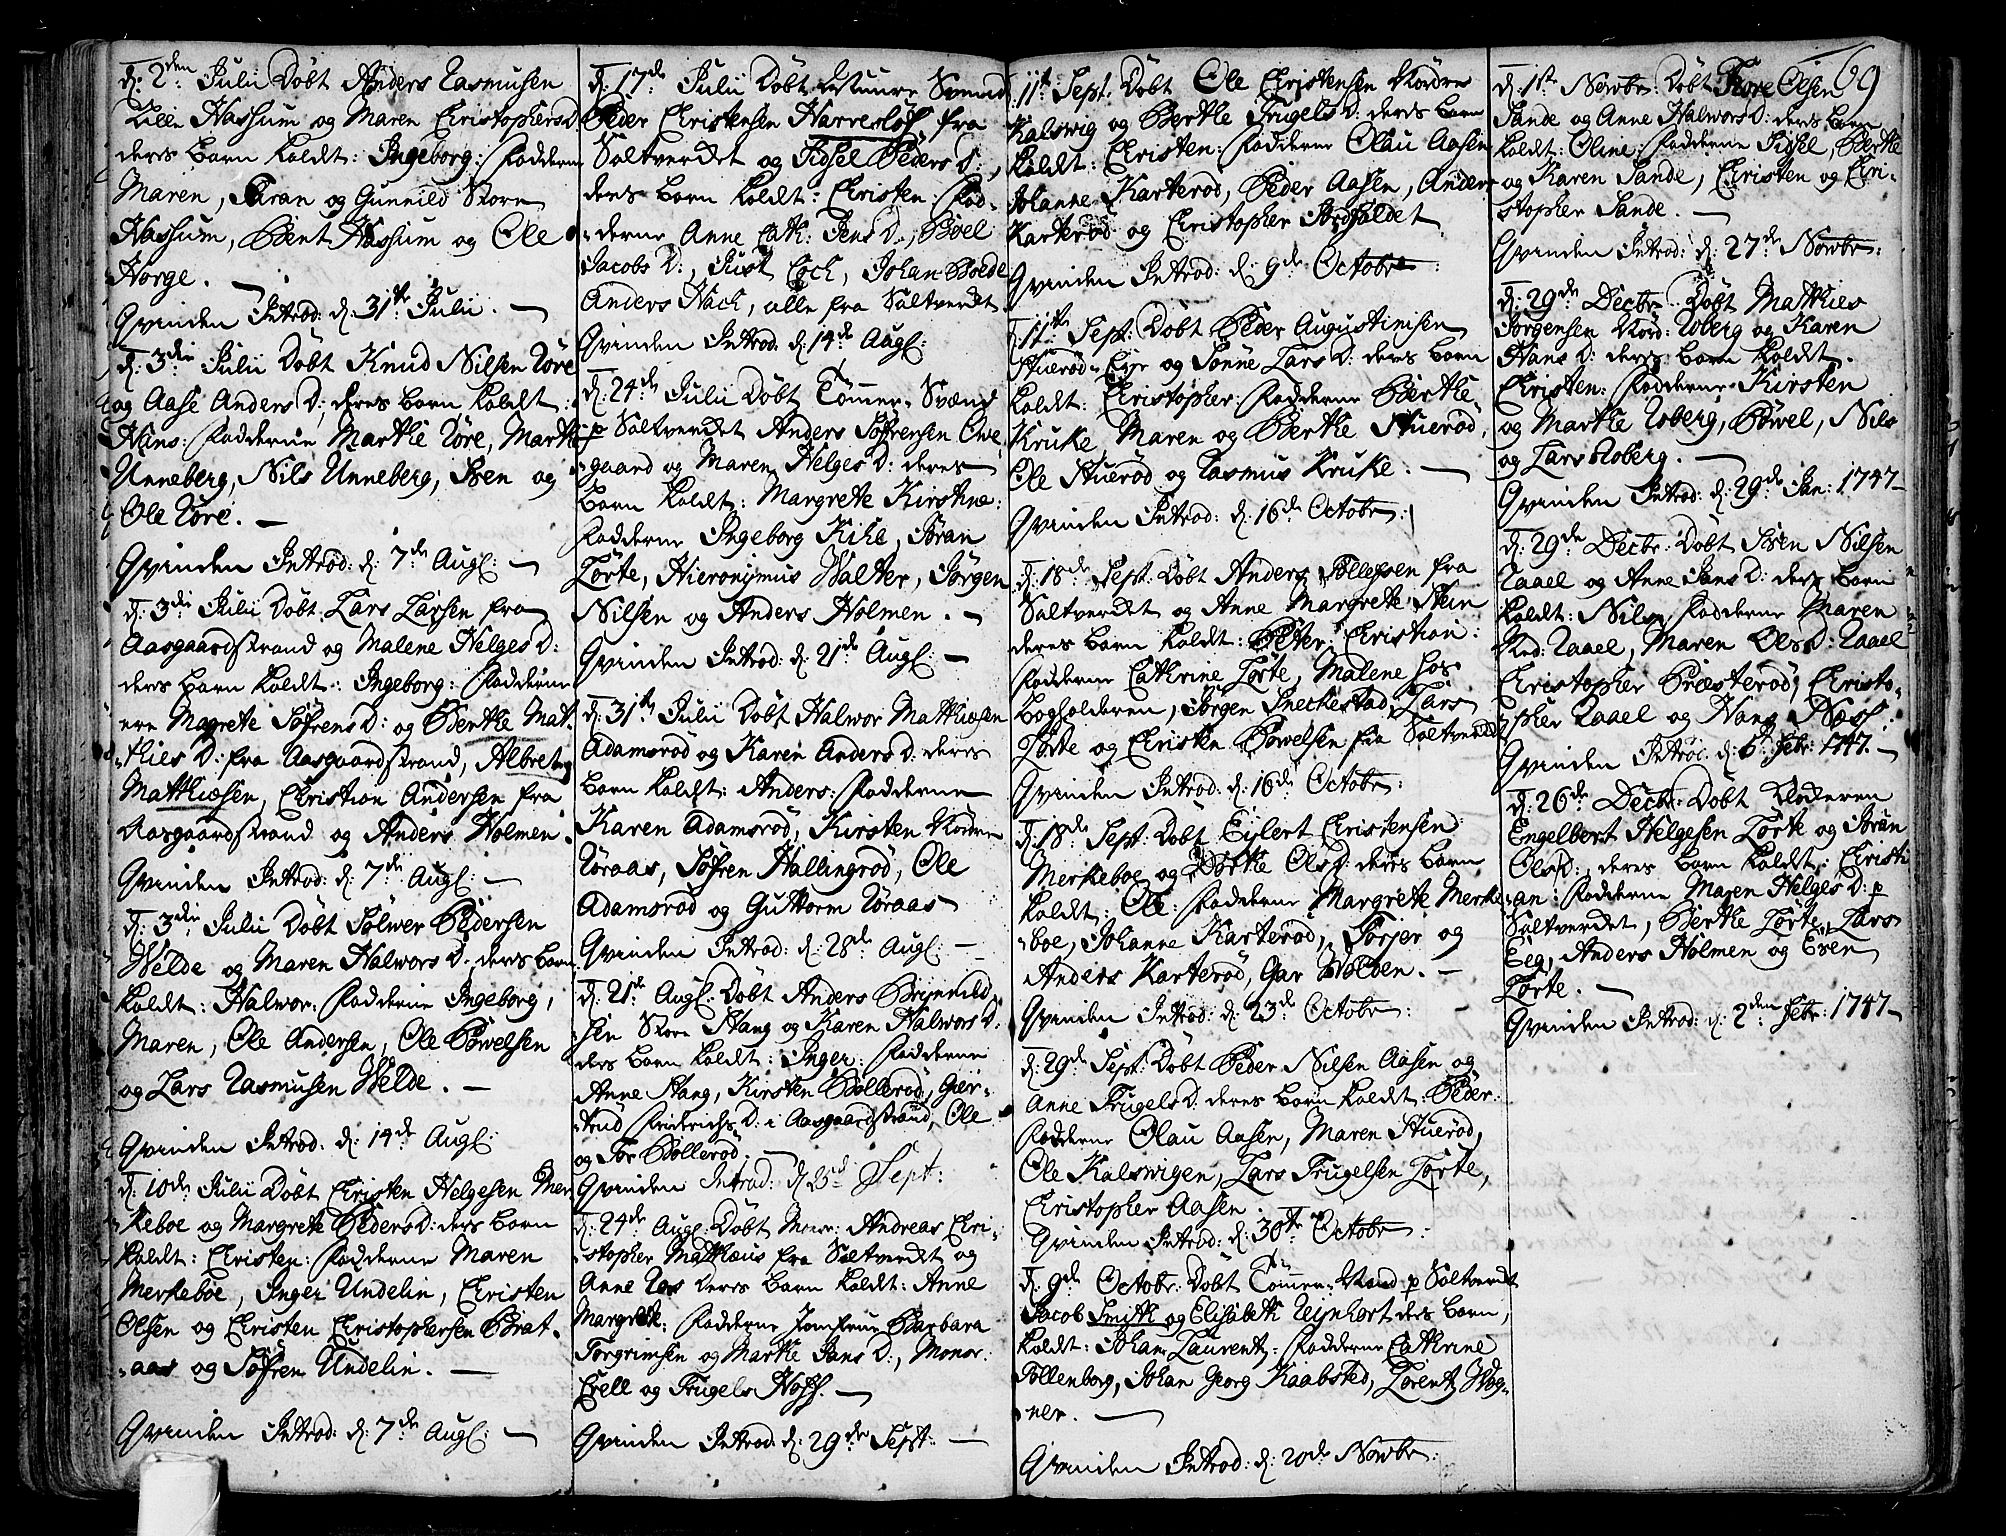 d: 2den Julii Døbt Anders Rasmusen
Lille Hassum og Maren ChristophersD
deres barn kaldt: Ingeborg: Fadderne
Maren, Søran og Gunnild Store
Hassum, Bent Hassum og Ole
Horge. —
Qvinden Introd: d. 31te Julii. —
d. 3die Julii Døbt Knud Nilsen Røre
og Aase Anders D: deres barn kaldt:
Hans: Fadderne Marthe Røre, Marthe
Unneberg, Nils Unneberg, Iven og
Ole Røre. —
Qvinden Introd: d: 7de Augl: —
d: 3die Julii Døbt Lars Larsen fra
Aasgaardstrand og Malene Helges D:
deres barn kaldt: Ingeborg: Fadderne
ere Magrete Søfrens D: og Berthe Mat-
thies D: fra Aasgaardstrand, Albret
Matthiesen, Christian Andersen fra
Aasgaardstrand og Anders Holmen.
Qvinden Introd: d: 7de Augl: —
d: 3die Julii Døbt Sølwer Pedersen
Welde og Maren Halwors D: deres barn
kaldt: Halwor: Fadderne Ingeborg,
Maren, Ole Andersen, Ole Powelsen
og Lars Rasmusen Welde. —
Qvinden Introd: d: 14de Augl:
d: 10de Julii Døbt Christen Helgesen Mer
keboe og Margrete Peders D: deres barn
kaldt: Christen: Fadderne Maren
Merkeboe, Inger Undelin, Christen
Olsen og Christen Christophersen Brat-
aas og Søfren Undelin. —
Qvinden Introd: d: 7de Augl: —
d: 17de Julii Døbt Muure Svend
Peder Christensen Harresløf fra
Saltverdet og Sidsel Peders D:,
deres barn kaldt: Christen: Fad-
derne Anne Cath: Jens D:, Boel
Jacobs D:, Just Coch, Johan Boede
Anders Nach, alle fra Saltverdet.
Qvinden Introd: d: 14de Augl:
d: 24de Julii Døbt Tømer-Svend
p Saltverdet Anders Søfrensen Ove
gaard og Maren Helges D: deres
barn kaldt: Margrete Kirstine:
Fadderne Ingeborg Kihl, Søran
Tørte, Hieronymus Walter, Jørgen
Nilsen og Anders Holmen. —
Qvinden Introd: d: 21de Augl: —
d: 31te Julii Døbt Halwor Matthiesen
Adamsrød og Karen Anders D: deres
barn kaldt: Anders: Fadderne
Karen Adamsrød, Kirsten Nordre
Røraas, Søfren Hallingrød, Ole
Adamsrød og Guttorm Røraas
Qvinden Introd: d: 28de Augl: —
d: 21de Augl: Døbt Anders Brynnild-
sen Store Stang og Karen Halwors D:
deres barn kaldt: Inger: Fadderne
Anne Stang, Kirsten Bollerød, Gier-
trud Friderichs D: i Aasgaardstrand, Ole
og Tor Bollerød. —
Qvinden Introd: d. 25d Sept:
d: 24de Augl: Døbt Monr: Andreas Chri-
stopher Matthæus fra Saltverdet og
Anne deres barn kaldt: Anne
Margrete: Fadderne Jomfrue Barbara
Torgrimsen og Marthe Jans D:, Monsr:
Crell og Trugels Hoff. —
Qvinden Introd: d: 29de Sept: —
11te Sept: Døbt Ole Christensen Nordre
Kalswig og Berthe Trugels D: deres barn
kaldt: Christen: Fadderne Olau Aasen
Johanne Karterød, Peder Aasen, Anders
Karterød og Christopher Jordfaldet
Qvinden Introd: d: 9de Octobr:
d: 11te Sept: Døbt Peder Augustinisen
Stuerød-Eye og Sønne Lars D: deres barn
kaldt: Christopher: Fadderne Berthe
Kruke, Maren og Berthe Stuerød,
Ole Stuerød og Rasmus Kruke: —
Qvinden Introd: d: 16de Octobr:
d: 18de Sept: Døbt Anders Tollefsen fra
Saltverdet og Anne Margrete Stein
deres barn kaldt: Peter Christian:
Fadderne Cathrine Tørte, Malene hos
bogholderen, Jørgen Sneckestad, Lars
Tørte og Christen Powelsen fra Saltverdet
Qvinden Introd: d: 16de Octobr:
d: 18de Sept: Døbt Eilert Christensen
Merkeboe og Dorthe Ols D: deres barn
kaldt: Ole: Fadderne Margrete Merke
boe, Johanne Karterød, Torjer og
Anders Karterød, Gar Wolden. —
Qvinden Introd: d: 23de Octobr: —
d: 29de Sept: Døbt Peder Nilsen Aasen og
Anne Trugels D: deres barn kaldt: Peder:
Fadderne Olau Aasen, Maren Stuerød,
Ole Kalswigen, Lars Trugelsen Tørte,
Christopher Aasen.
Qvinden Introd: d: 30te Octobr:
d: 9de Octobr: Døbt Tømer-Mand p Saltverdt
Jacob Smith og Elisabeth Reynhort ders barn,
kaldt: Johan Laurentz: Fadderne Cathrine
Tollenborg, Johan Georg Kaabsted, Lorentz Wog-
ner. —
Qvinden Introd: d: 20de Nowbr:
69
d: 1ste Nowbr: Døbt Tore Olsen
Sande og Anne Halwors D: deres barn
kaldt: Oline: Fadderne Sidsel, Berthe
og Karen Sande, Christen og Chri-
stopher Sande. —
Qvinden Introd: d: 27de Nowbr:
d: 29de Decbr: Døbt Matthies
Jorgensen Nord: Roberg og Karen
Hans D: deres barn kaldt.
Christen: Fadderne Kirsten
og Marthe Roberg, Powel, Nils
og Lars Roberg. —
Qvinden Introd: d: 29de Jan: 1747—
d: 29de Decbr: Døbt Iven Nilsen
Raael og Anne Jans D: deres barn
kaldt: Nils, Fadderne Maren
Ned: Raael, Maren Ols D: Raael
Christopher Præsterød, Christo-
pher Raael og Hans Næss:
Qvinden Introd: d: 6te Febr: 1747. —
d: 26de Decbr: Døbt Kloderen
Engelbert Helgesen Tørte og Søran
Ols D:, deres barn kaldt: Christi
an: Fadderne Maren Helges D: p
Saltverdet, Berthe Tørte, Lars
Eeg, Anders Holmen og Even
Tørte. —
Qvinden Introd: d: 2den Febr: 1747—